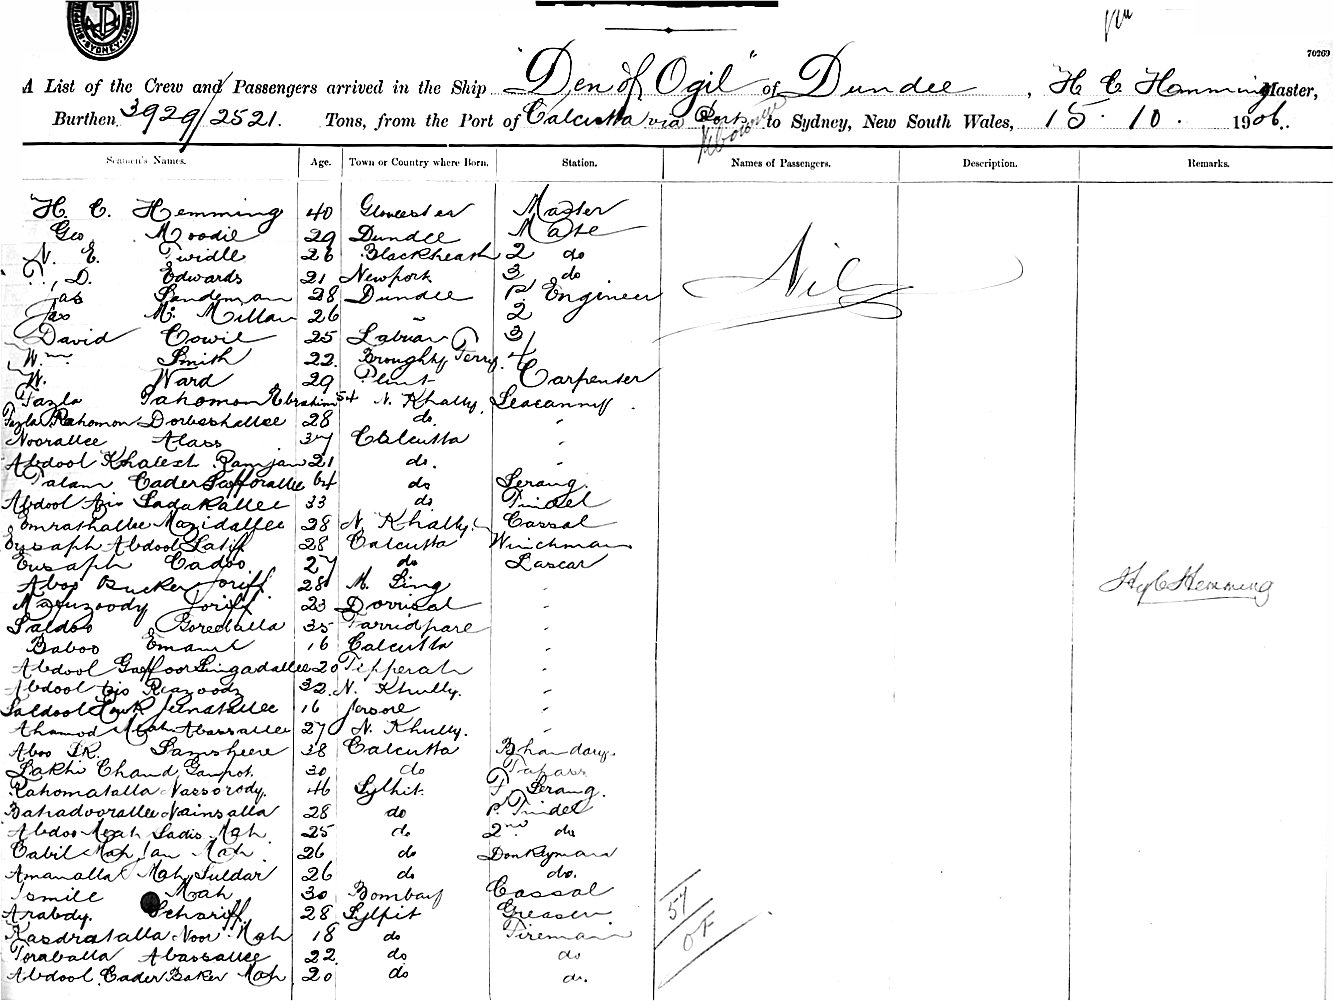 70269
A List of the Crew and Passengers arrived in the Ship "Den of Ogil" of Dundee, H C Hemming Master,
Burthen 3929/2521. Tons, from the Port of Calcutta via Port to Sydney, New South Wales, 15. 10. 1906.
Seamen's Names. Age. Town or Country where Born. Station. Names of Passengers. Description. Remarks.
H. C. Hemming 40 Gloucester Master
Geo Moodie 29 Dundee Mate
N. E. Twidle 26 Blackheath 2 do
T. D. Edwards 21 Newport 3 do
Nil
Jas Sandeman 28 Dundee P. Engineer
Jas Mc Millan 26 " 2
David Cowie 25 3
Wm Smith 22. Broughty Ferry. 4
W. Ward 29 Flint Carpenter
Fazla Rahomon Ebrahim 54 N. Khally. Seacunny.
Fazla Rahomon Dorbeshallee 28 do. "
Noorallee Alass 37 Calcutta "
Abdool Khalech Ramjan 21 do. "
Cader Safforallee 64 do Serang.
Abdool Azis Sadakallee 33 do. Tindel
Emrathallee Mazidallee 28 N. Khally. Cassal
Eusaph Abdool Latif 28 Calcutta Winchman
Eusaph Cadoo 27 do Lascar
Aboo Bucker Joriff. 28 M. Sing "
Joriff 23 "
Hy C Hemming
Saldoo 35 Furridpore "
Baboo Emanl 16 Calcutta "
Abdool Gaffoor Singadallee 20 Tipperah "
Abdool Azis 32. N. Khully. "
16 Jesore "
Ahamod Meah Abassallee 27 N. Khully. "
Aboo SK. Samsheere 38 Calcutta Bhandary.
Lakhi Chand Gunpot. 30 do Topass
Rahomatalla Nassorody. 46 Sylhit. F. Serang.
Bahadoorallee Nainsalla 28 do P. Tindel
Abdoo Meah Sadis Mah. 25 do 2nd do
Cabil Mah Jan Mah. 26 do Donkeyman
Amanalla Mah Suldar 26 do do.
Ismile Mah 30 Bombay Cassal
Arabdy. Schariff. 28 Sylhit Greaser
51
OF
Kasdratalla Noor Mah 18 do Fireman
Toraballa Abassallee 22. do do
Abdool Cader Baker Mah 20 do do.